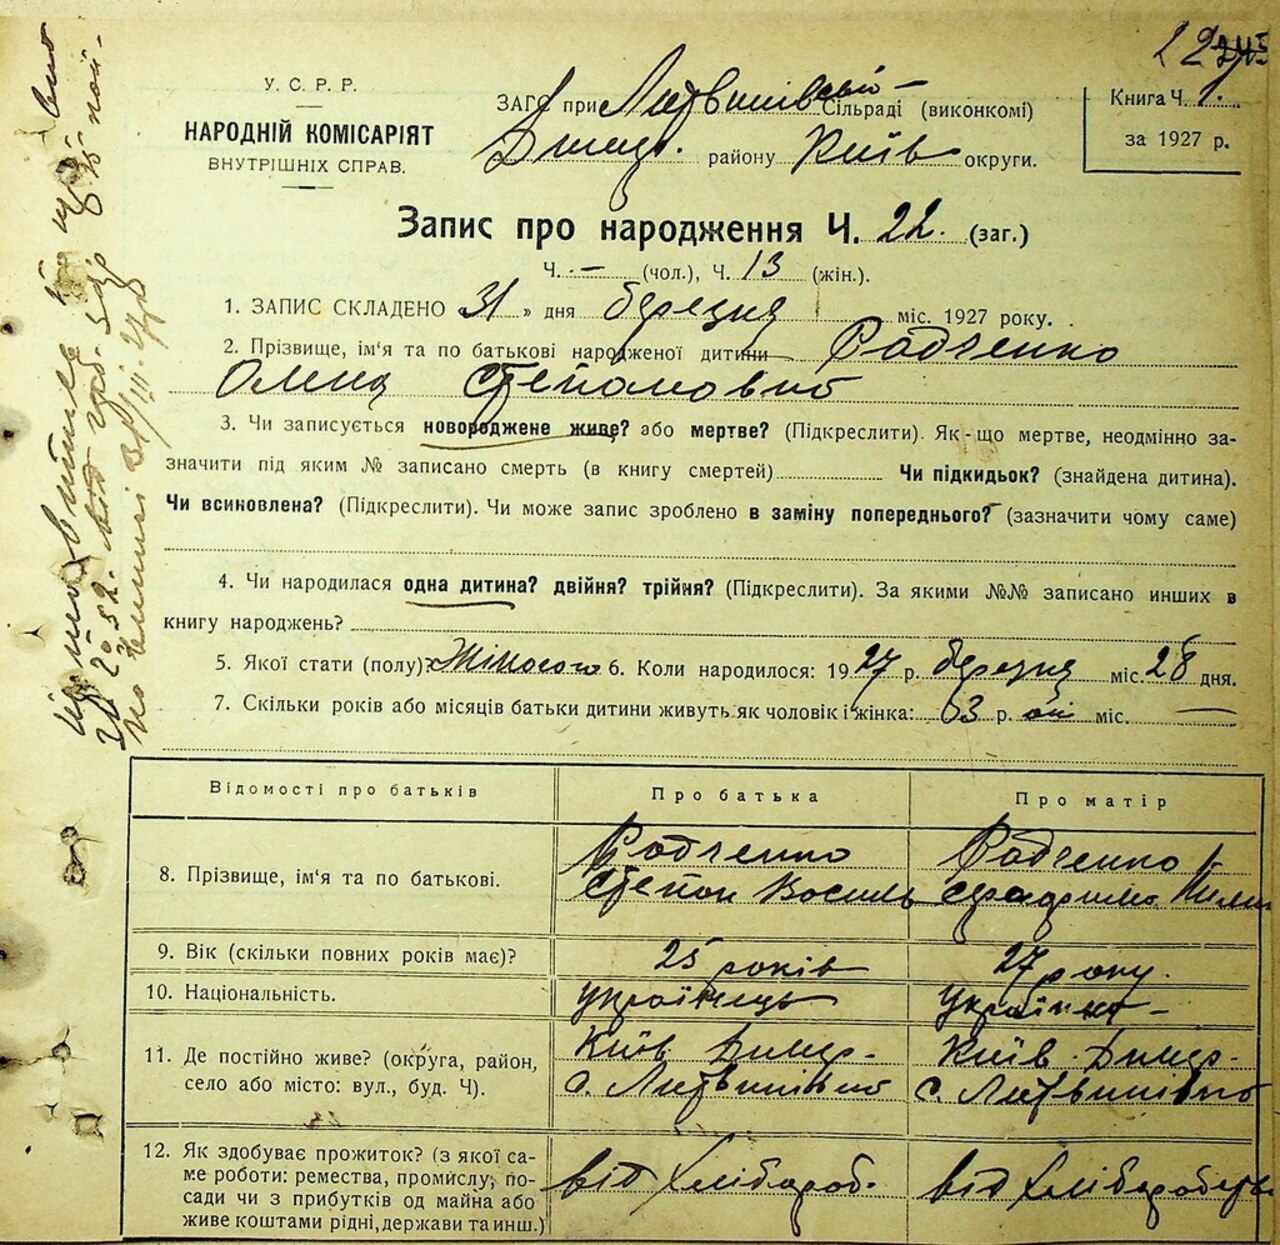 У. С. Р. Р.
НАРОДНІЙ КОМІСАРІЯТ
ВНУТРІШНІХ СПРАВ.
ЗАГС при Литвинівській Сільраді (виконкомі)
Димер. району Київ округи.
Книга Ч. 1.
за 1927 р.
Запис про народження Ч. 22. (заг.)
Ч. - (чол.), Ч. 13 (жін.).
1. ЗАПИС СКЛАДЕНО «31» дня березня міс. 1927 року.
2. Прізвище, ім'я та по батькові народженої дитини Радченко
Олена Степановна
3. Чи записується новороджене живе? або мертве? (Підкреслити). Як-що мертве, неодмінно за-
значити під яким № записано смерть (в книгу смертей) Чи підкидьок? (знайдена дитина).
Чи всиновлена? (Підкреслити). Чи може запис зроблено в заміну попереднього? (зазначити чому саме)
4. Чи народилася одна дитина? двійня? трійня? (Підкреслити). За якими №№ записано инших в
книгу народжень?
5. Якої стати (полу)? Жіночої 6. Коли народилося: 1927 р. березня міс. 28 дня.
7. Скільки років або місяців батьки дитини живуть як чоловік і жінка: 3 р. міс. —
Відомості про батьків
Про батька
Про матір
8. Прізвище, ім'я та по батькові.
Радченко
Степан Василь
Радченко
9. Вік (скільки повних років має)?
25 років
27 року.
10. Національність.
Українець
Українка
11. Де постійно живе? (округа, район,
село або місто: вул., буд. Ч).
Київ Димер.
с. Литвинівка
Київ. Димер.
с. Литвинівка
12. Як здобуває прожиток? (з якої са-
ме роботи: ремества, промислу, по-
сади чи з прибутків од майна або
живе коштами рідні, держави та инш.)
від хлібороб.
від